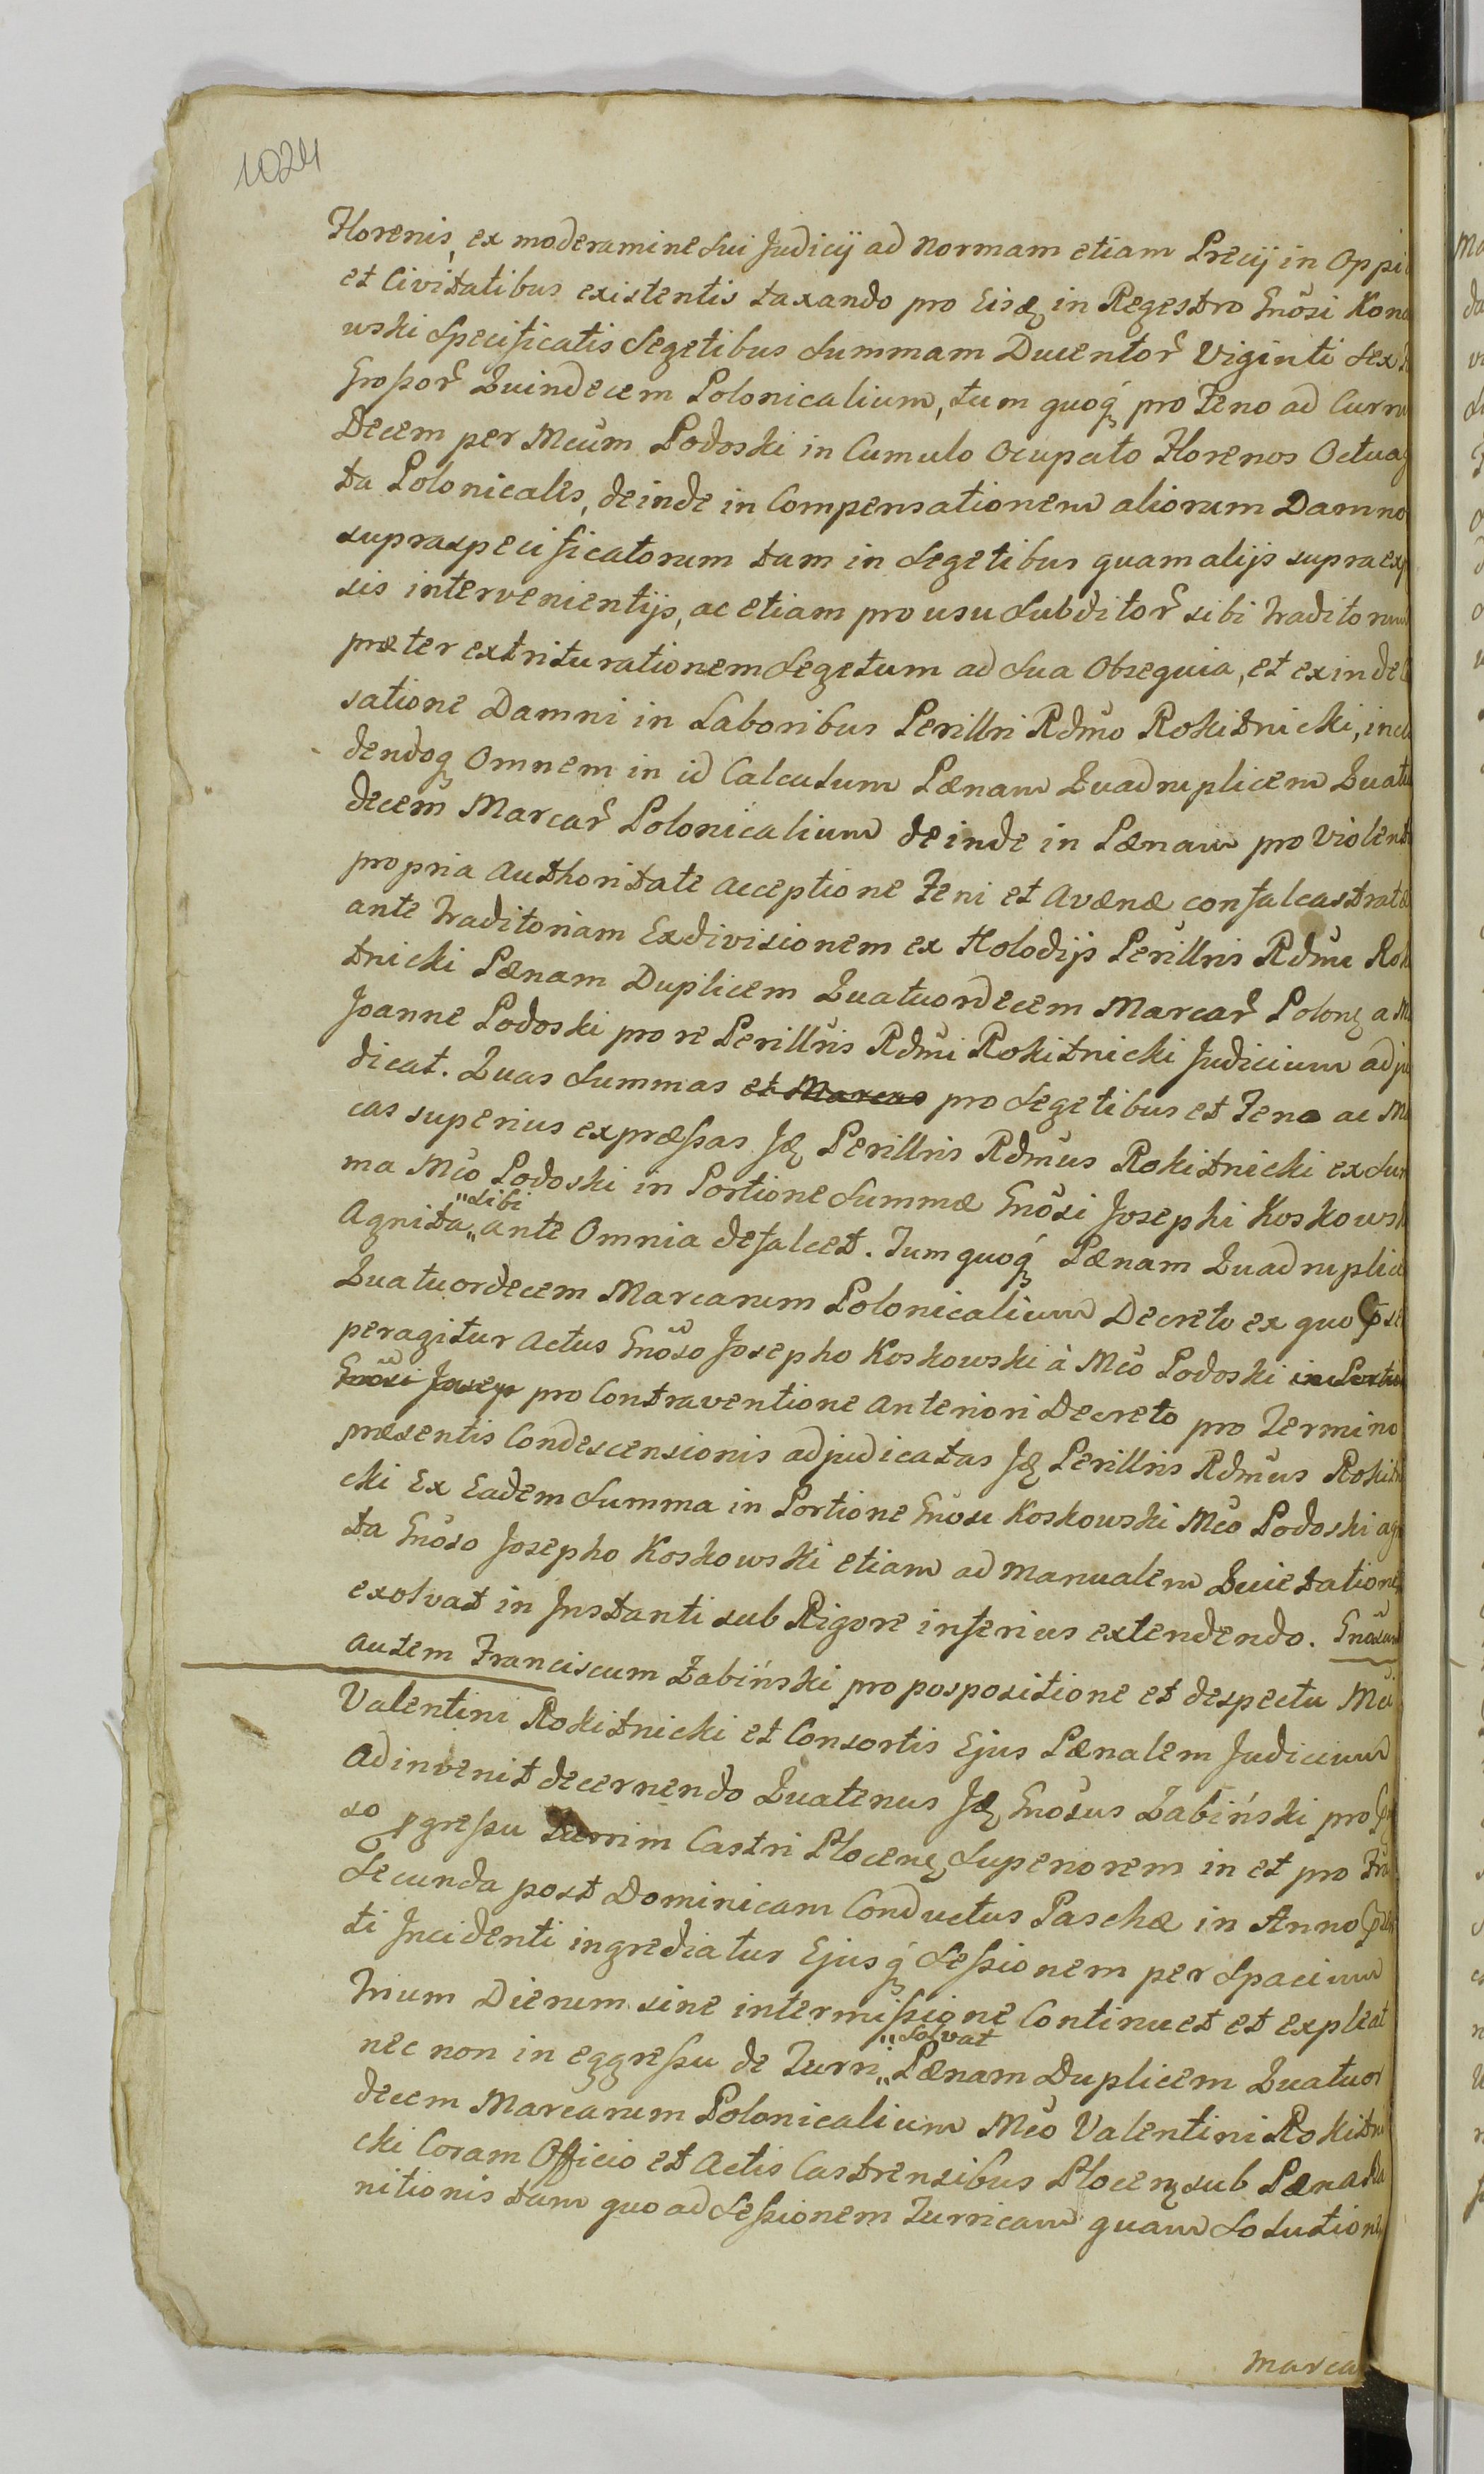 1024
Florenis, ex moderamine sui Judicij ad normam etiam Precij in Oppi
et Civitatibus existentis taxando pro Eisq in Regestro Gnosi Kono
wski Specificatis Segetibus Summam Ducentor Viginti sex
Großor Quindecem Polonicalium, tum quoq pro Feno ad Curru
Decem per Mcum Podoski in Cumulo Ocupato Florenos Octuag
ta Polonicales, deinde in Compensationem aliorum Damno
supraspecificatorum tam in Segetibus quam alijs supraexp
sis intervenientijs, ac etiam pro usu Subditor sibi traditorum
præter extriturationem Segetum ad Sua Obsequia, et exinde
satione Damni in Laboribus Perillri Rdmo Rokitnicki, incl
dendoq Omnem in id Calculum Pænam Quadruplicem Quatu
decem Marcar Polonicalium deinde in Pænam pro Violent
propria Authoritate acceptione Feni et Avænæ confalcastratæ
ante traditoriam Exdivisionem ex Holodijs Perillris Rdmi Rok
tnicki Pænam Duplicem Quatuordecem Marcar Polonq a M
Joanne Podoski pro re Perillris Rdmi Rokitnicki Judicium adju
dicat. Quas Summas et Marcas pro Segetibus et Feno ac Ma
cas superius expræßas Jq Perillris Rdmus Rokitnicki ex Sum
ma Mco Podoski in Portione Summæ Gnosi Josephi Koskowsk
"sibi
Agnita " ante Omnia defalcet. Tum quoq Pænam Quadruplice
Quatuordecem Marcarum Polonicalium Decreto ex quo pse
peragitur Actus Gnoso Josepho Koskowski à Mco Podoski in Portio
Gnosi Josep pro Contraventione Anteriori Decreto pro Termino
præsentis Condescensionis adjudicatas Jq Perillris Rdmus Rokitn
cki Ex Eadem Summa in Portione Gnosi Koskowski Mco Podoski agn
ta Gnoso Josepho Koskowski etiam ad manualem Quietatione
exolvat in Instanti sub Rigore inferius extendendo. Gnosum
autem Franciscum Zabiński pro posposititione et despectu Mci
Valentini Rokitnicki et Consortis Ejus Pænalem Judicium
Adinvenit decernendo Quatenus Jq Gnosus Zabiński pro
so pgreßu Turrim Castri Plocenq Superiorem in et pro
Secunda post Dominicam Conductus Paschæ in Anno
ti Incidenti ingrediatur Ejusq Seßionem per Spacium
Trium Dierum sine intermißione Continuet et expleat
"solvat
nec non in eggreßu de Turri " Pænam Duplicem Quatuor
decem Marcarum Polonicalium Mco Valentini Rokitni
cki Coram Officio et Actis Castrensibus Plocenq sub Pæna
nitionis tam quo ad Seßionem Turricam quam Solutione
Marca